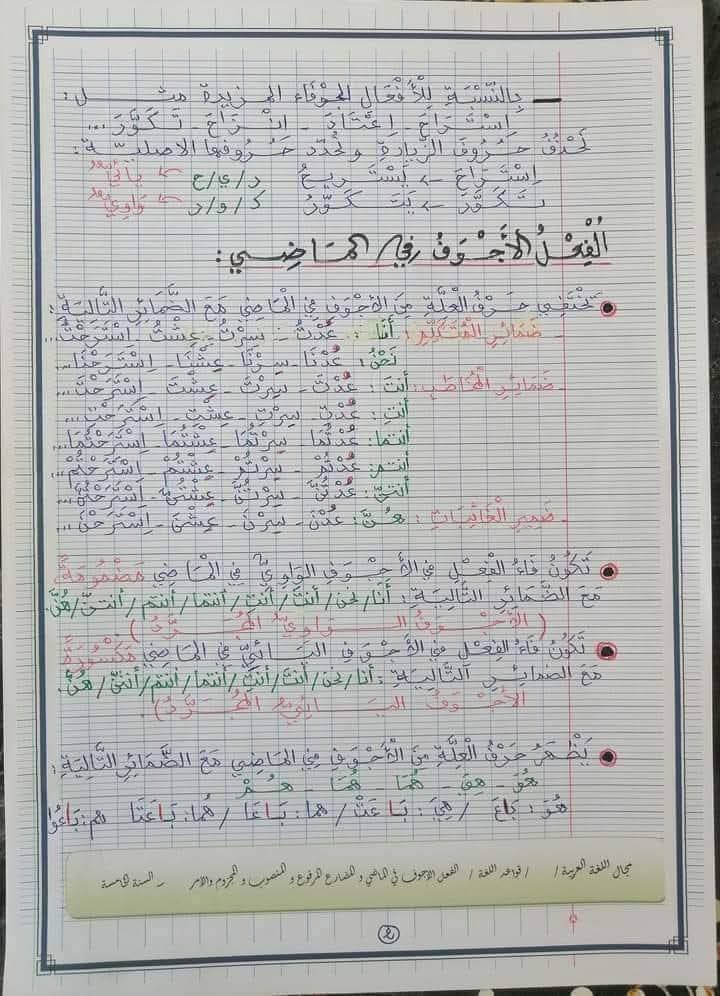 ــ بِالنِّسْبَةِ لِلْأَفْعَالِ الجَوْفَاءِ المَزِيدَةِ مثل :
اِسْتَرَاحَ - اِعْتَادَ - اِنْزَاحَ - تَكَوَّرَ ...
نَحْذِفُ حُرُوفَ الزِّيَادَةِ ونُحَدِّد حُرُوفَهَا الأصْلِيَّةَ :
اِسْتَرَاحَ ← يَسْتَرِيحُ ر/ي/ح ← يَائِيٌّ
تَكَوَّرَ ← يَتَكَوَّرُ ك/و/ر ← وَاوِيٌّ
الْفِعْلُ الأَجْوَفُ فِي المَاضِي :
● يَخْتَفِي حَرْفُ العِلَّةِ مِنَ الأَجْوَفِ فِي الْمَاضِي مَعَ الضَّمَائِرِ التَّالِيَةِ :
- ضَمَائِر المُتَكَلِّمِ : أَنَا : عُدْتُ - سِرْتُ - عِشْتُ - اِسْتَرَحْتُ ...
نَحْنُ : عُدْنَا - سِرْنَا - عِشْنَا - اِسْتَرَحْنَا ...
- ضَمَائِر المُخَاطَبِ : أنتَ : عُدْتَ - سِرْتَ - عِشْتَ - اِسْتَرَحْتَ ...
أنتِ : عُدْتِ - سِرْتِ - عِشْتِ - اِسْتَرَحْتِ ...
أنتما : عُدْتُمَا - سِرْتُمَا - عِشْتُمَا - اِسْتَرَحْتُمَا ...
أنتم : عُدْتُمْ - سِرْتُمْ - عِشْتُمْ - اِسْتَرَحْتُمْ ...
أنتنّ : عُدْتُنَّ - سِرْتُنَّ - عِشْتُنَّ - اِسْتَرَحْتُنَّ ...
- ضَمِير الْغَائِبَاتِ : هُنَّ : عُدْنَ - سِرْنَ - عِشْنَ - اِسْتَرَحْنَ ...
● تَكُونُ فَاءُ الْفِعْلِ فِي الأَجْوَفِ الوَاوِيِّ فِي الْمَاضِي مَضْمُومَةً
مَعَ الضَّمَائِرِ التَّالِيَةِ : أَنَا/نحن/أنتَ/أنتِ/أنتما/أنتم/أنتنّ/هُنَّ.
(الأَجْوَفُ الوَاوِيُّ المُجَرَّدُ).
● تَكُونُ فَاءُ الفِعْلِ فِي الأَجْوَفِ اليَائِيِّ فِي المَاضِي مَكْسُورَةً
مَعَ الضَمَائِرِ التَّالِيَةِ : أنا/نحن/أنتَ/أنتِ/أنتما/أنتم/أنتنّ/هُنَّ.
الأَجْوَفُ اليَائِيُّ المُجَرَّدُ).
● يَظْهَرُ حَرْفُ الْعِلَّةِ مِنَ الْأَجْوَفِ فِي المَاضِي مَعَ الضَّمَائِرِ التَّالِيَةِ :
هُوَ - هِيَ - هُمَا - هُمَا - هُمْ
هُوَ : بَاعَ / هِيَ : بَاعَتْ / هما : بَاعَا / هُما : بَاعَتَا هم : بَاعُوا
مجال اللغة العربية / / قواعد اللغة / الفعل الأجوف في الماضي و المضارع المرفوع و المنصوب و المجزوم والأمر - السنة الخامسة
2